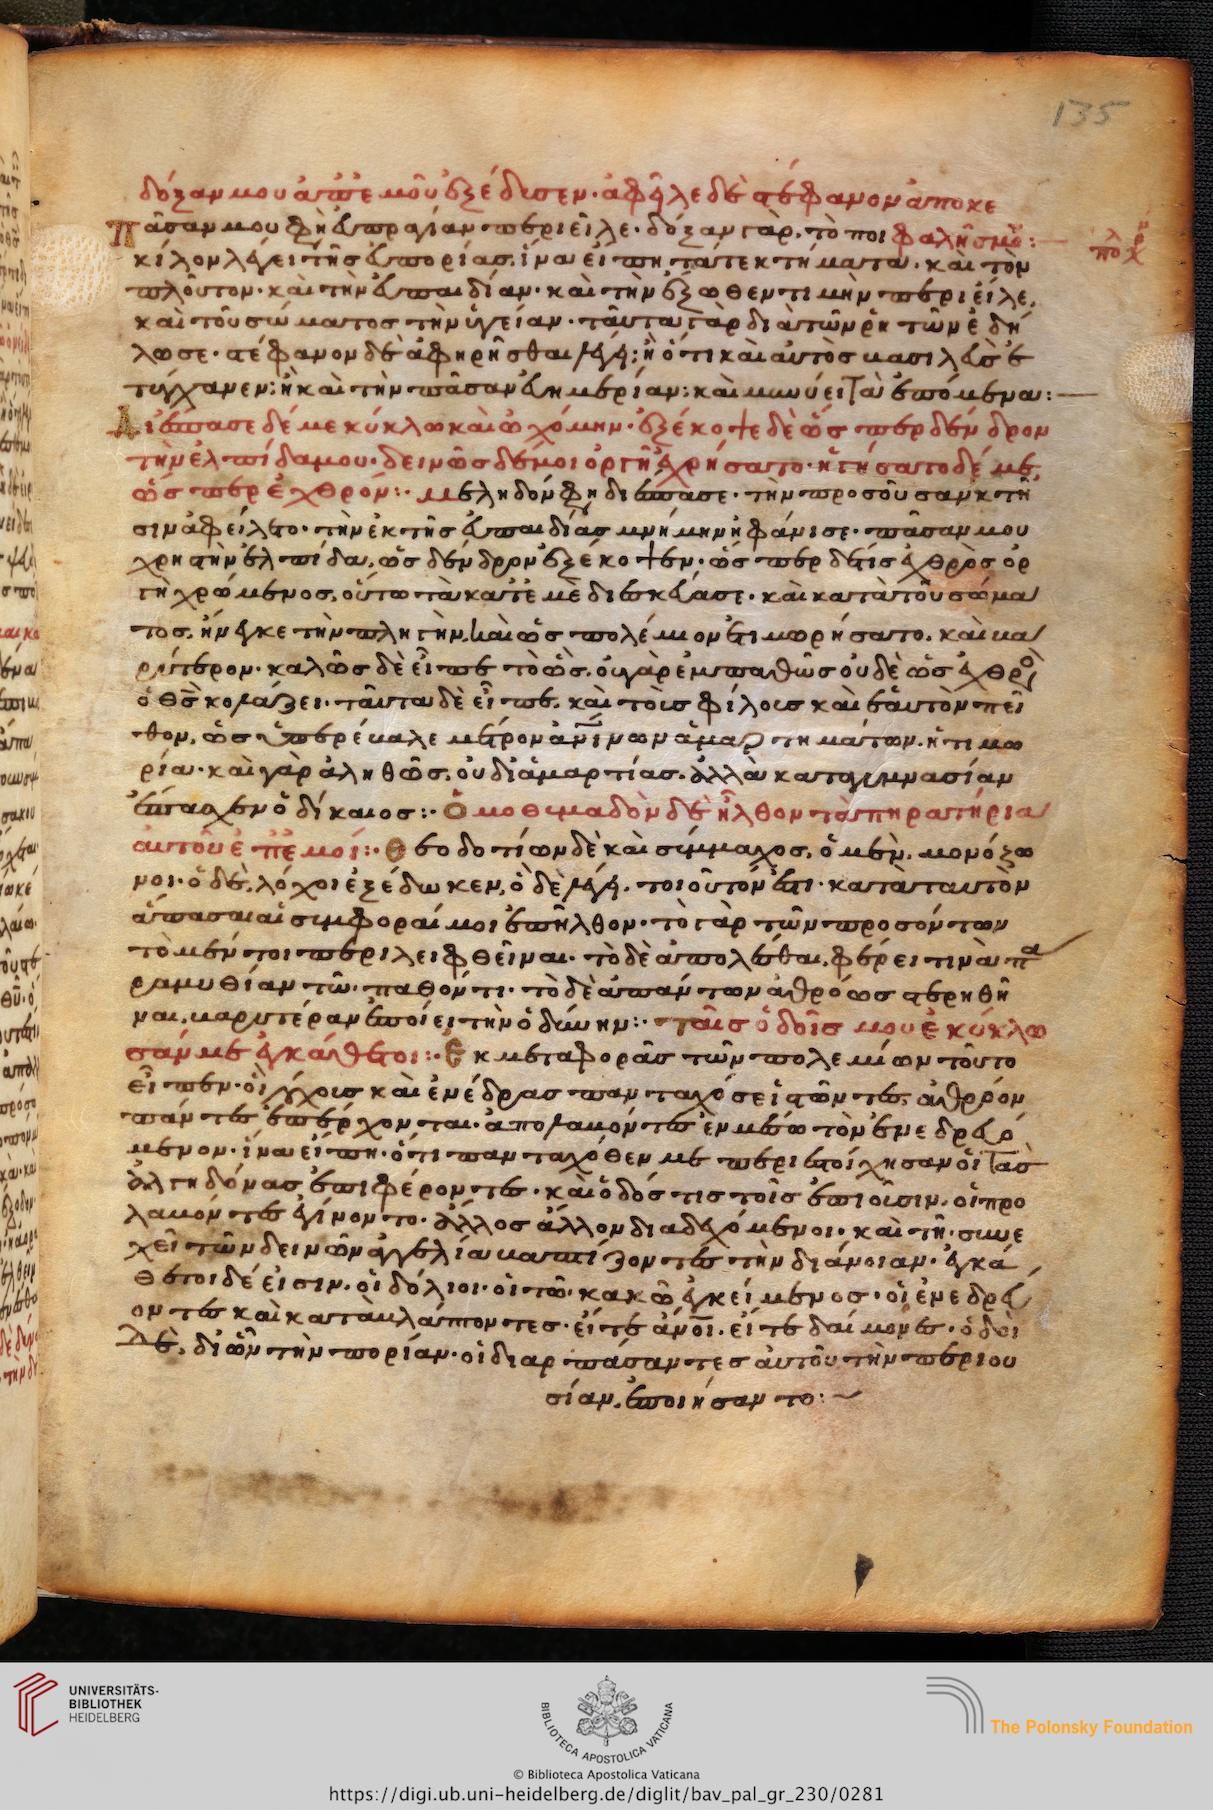 135
δόξαν μου ἀπ' ἐμοῦ ἐξέδυσεν· ἀφεῖλε δὲ στέφανον ἀπὸ κε
Πᾶσαν μου φη εὐπραγίαν περιεῖλε· δόξαν γὰρ, τὸ ποι φαλῆς μου:
κίλον λέγει τῆς εὐπορίας. ἵνα εἴπη τὰ τε κτήματα· καὶ τὸν
πλοῦτον· καὶ τὴν εὐπαιδίαν· καὶ τὴν ἔξωθεν τιμὴν περιεῖλε,
καὶ τοῦ σώματος τὴν ὑγείαν· ταῦτα γὰρ διὰ τῶν ῥητῶν ἐδή
λωσε· στέφανον δὲ ἀφηρῆσθαι λέγει· ἢ ὅτι καὶ αὐτὸς βασιλεὺς ἐ
τύγχανεν· ἢ καὶ τὴν πᾶσαν εὐημερίαν: καὶ μηνύει τὰ ἑπόμενα:
Διέσπασε δέ με κύκλω καὶ ὠχόμην· ἐξέκοψε δὲ ὥσπερ δένδρον
τὴν ἐλπίδα μου· δεινῶς δέ μοι ὀργῆ ἐχρήσατο· ἡγήσατο δέ με
ὥσπερ ἐχθρόν:· μεληδόν φη διέσπασε· τὴν προσοῦσαν κτῆ
σιν ἀφείλετο· τὴν ἐκ τῆς εὐπαιδίας μνήμην ἠφάνισε· πᾶσαν μου
χρηστὴν ἐλπίδα, ὡς δένδρον ἐξέκοψεν· ὥσπερ δέ τις ἐχθρὸς ὀρ
γῆ χρώμενος, οὕτω τὰ κατ' ἐμὲ διεσκέδασε· καὶ κατὰ τοῦ σώμα
τος. ἤνεγκε τὴν πληγὴν. καὶ ὡς πολέμιον ἐτιμωρήσατο. καὶ βα
ρύτερον· καλῶς δὲ εἶπε τὸ ὡς. οὐ γὰρ ἐμπαθῶς οὐδὲ ὡς ἐχθρὸν
ὁ θς κολάζει· ταῦτα δὲ εἶπε. καὶ τοὺς φίλους καὶ ἑαυτὸν πεί
θων, ὡς ὑπερέβαλε μέτρον ἀνίνων ἁμαρτημάτων. ἡ τιμω
ρία· καὶ γὰρ ἀληθῶς. οὐ δι' ἁμαρτίας. ἀλλὰ κατὰ γυμνασίαν
ἔπασχεν ὁ δίκαιος:· Ὁμοθυμαδὸν δὲ ἦλθον τὰ πηρατήρια
αὐτοῦ ἐπ' ἐμοί:· Θεοδοτίων δὲ καὶ σύμμαχος. ὁ μὲν. μονόζω
νοι· ὁ δὲ. λόχοι ἐξέδωκεν, ὁ δὲ λέγει. τοιοῦτόν ἐστι· κατὰ ταυτὸν
ἅπασαι αἱ συμφοραί μοι ἐπῆλθον· τὸ γὰρ τῶν προσόντων
τὸ μέν τοι περιλειφθεῖναι· τὸ δὲ ἀπολέσθαι, φέρει τινὰ πα
ραμυθίαν τῶ παθόντι· τὸ δὲ ἁπάντων ἀθρόως στερηθῆ
ναι, βαρυτέραν ἐποίει τὴν ὀδύνην:· ταῖς ὁδοῖς μου ἐκύκλω
σάν με ἐγκάθετοι:· Ἐκ μεταφορᾶς τῶν πολεμίων τοῦτο
εἶπεν· οἳ λόχους καὶ ἐνέδρας πανταχόσε ἱστῶντες, ἀθρόον
πάντες ἐπέρχονται· ἀπολαβόντες ἐν μέσω τὸν ἐνεδρευό
μενον· ἵνα εἴπη· ὅτι πανταχόθεν με περιεστοίχησαν οἱ τὰς
ἀλγηδόνας ἐπιφέροντες· καὶ ὁδός τις τοῖς ἐπιοῦσιν. οἱ προ
λαβόντες ἐγίνοντο· ἄλλος ἄλλον διαδεχόμενοι· καὶ τῆ συνε
χεῖ τῶν δεινῶν ἀγγελία βαπτίζοντες τὴν διάνοιαν· ἐγκά
θετοι δέ εἰσιν. οἱ δόλιοι· οἱ τῶ κακῶ ἐγκείμενος· οἱ ἐνεδρεύ
οντες καὶ καταβλάπτοντες· εἴτε ἄνοι. εἴτε δαίμονες· ὁδοὶ
δὲ. δι' ὧν τὴν πορίαν· οἱ διαρπάσαντες αὐτοῦ τὴν περιου
σίαν. ἐποιήσαντο:
UNIVERSITÄTS-
BIBLIOTHEK
HEIDELBERG
BIBLIOTECA APOSTOLICA VATICANA
The Polonsky Foundation
© Biblioteca Apostolica Vaticana
https://digi.ub.uni-heidelberg.de/diglit/bav_pal_gr_230/0281